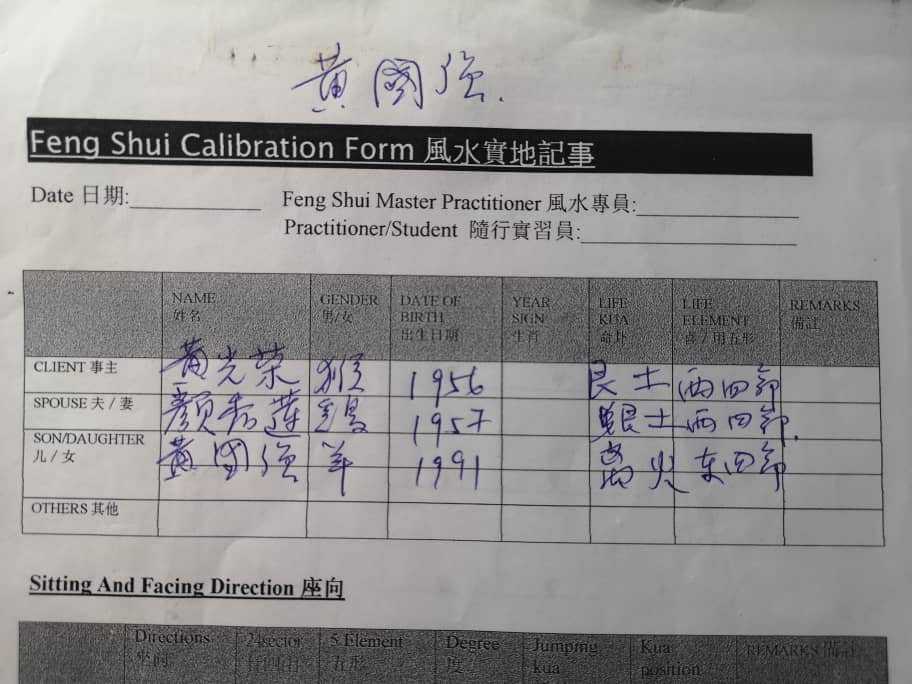 黃國強.
Feng Shui Calibration Form 風水實地記事
Date 日期:
Feng Shui Master Practitioner 風水專員:
Practitioner/Student 隨行實習員:
NAME GENDER DATE OF YEAR LIFE LIFE REMARKS
姓名 男/女 BIRTH SIGN KUA ELEMENT 備註
出生日期 生肖 命卦 喜/用五形
CLIENT 事主 黃光榮 猴 1956 艮土 西四
SPOUSE 夫/妻 顏秀蓮 鷄 1957 土 西四
SON/DAUGHTER 黃國強 羊 1991 火 东四
儿/女
OTHERS 其他
Sitting And Facing Direction 座向
Directions 24sector 5 Element Degree Jumping Kua REMARKS 備註
坐向 五形 度 kua position